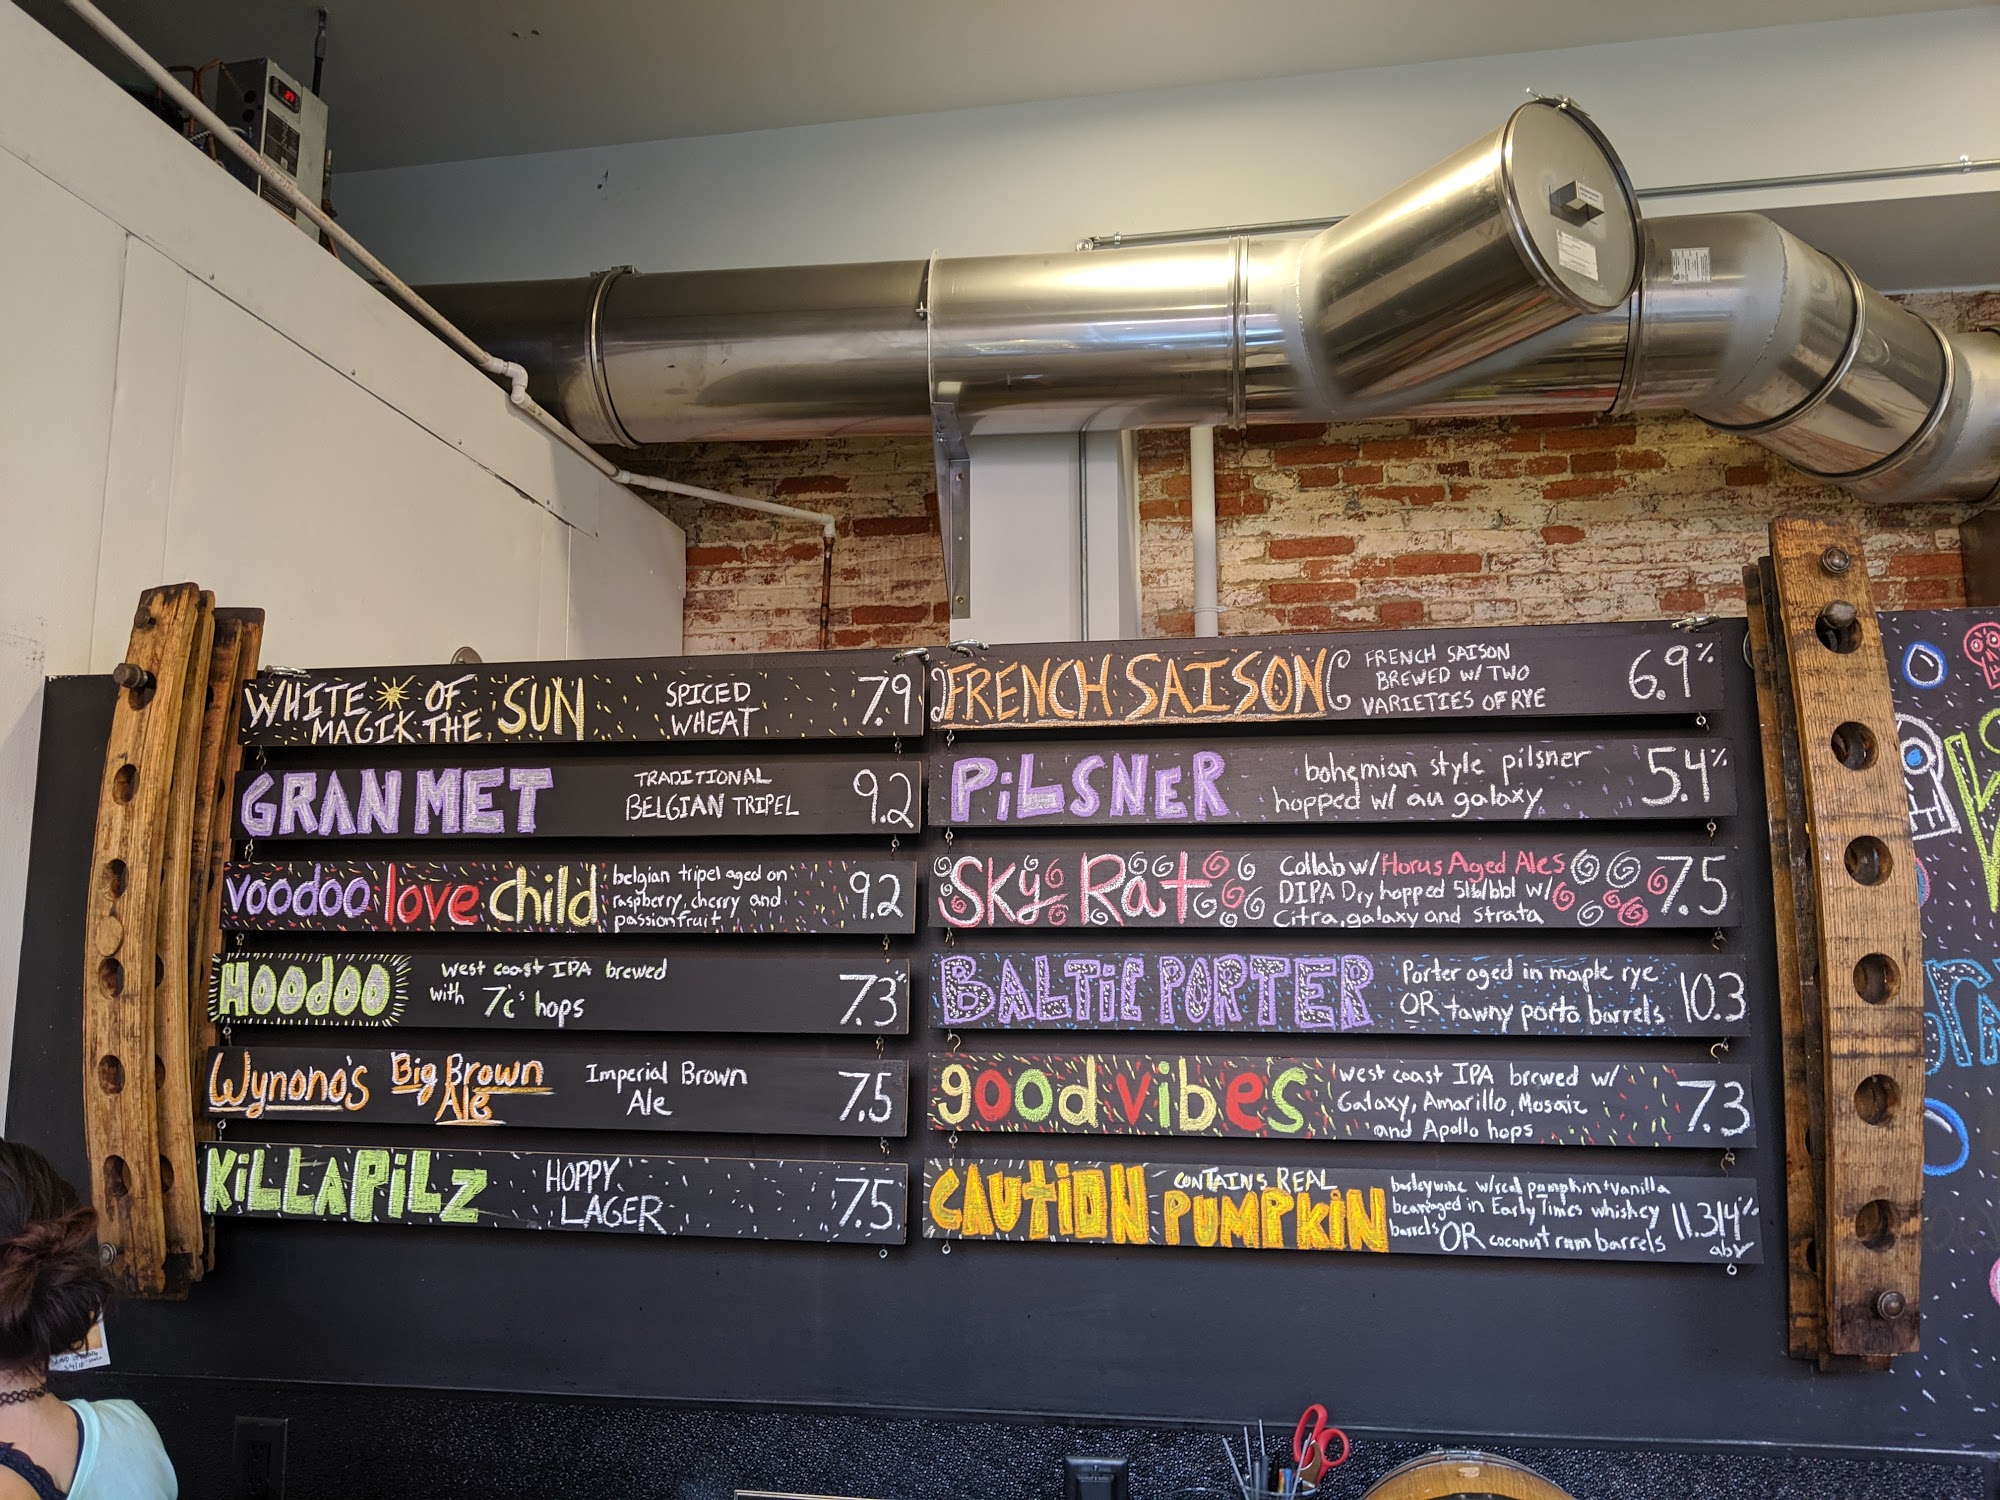 WHITE OF
MAGIK THE SUN
SPICED
WHEAT
7.9
GRAN MET
TRADITIONAL
BELGIAN TRIPEL
9.2
voodoo love child
belgian tripel aged on
raspberry, cherry and
passionfruit
9.2
HOODOO
west coast IPA brewed
with 7c's hops
7.3%
Wynono's Big Brown
Ale
Imperial Brown
Ale
7.5
KiLLAPiLz
HOPPY
LAGER
7.5
FRENCH SAISON
FRENCH SAISON
BREWED W/ TWO
VARIETIES OF RYE
6.9%
PiLSNER
bohemian style pilsner
hopped w/ au galaxy
5.4%
Sky Rat
Collab w/ Horus Aged Ales
DIPA Dry hopped 5lb/bbl w/
Citra, galaxy and strata
7.5
BALTiC PORTER
Porter aged in maple rye
OR tawny porto barrels
10.3
good vibes
west coast IPA brewed w/
Galaxy, Amarillo, Mosaic
and Apollo hops
7.3
CAUTiON
CONTAINS REAL
PUMPKiN
barleywine w/real pumpkin + vanilla
bean aged in Early Times whiskey
barrels OR coconut rum barrels
11.3/14%
abv